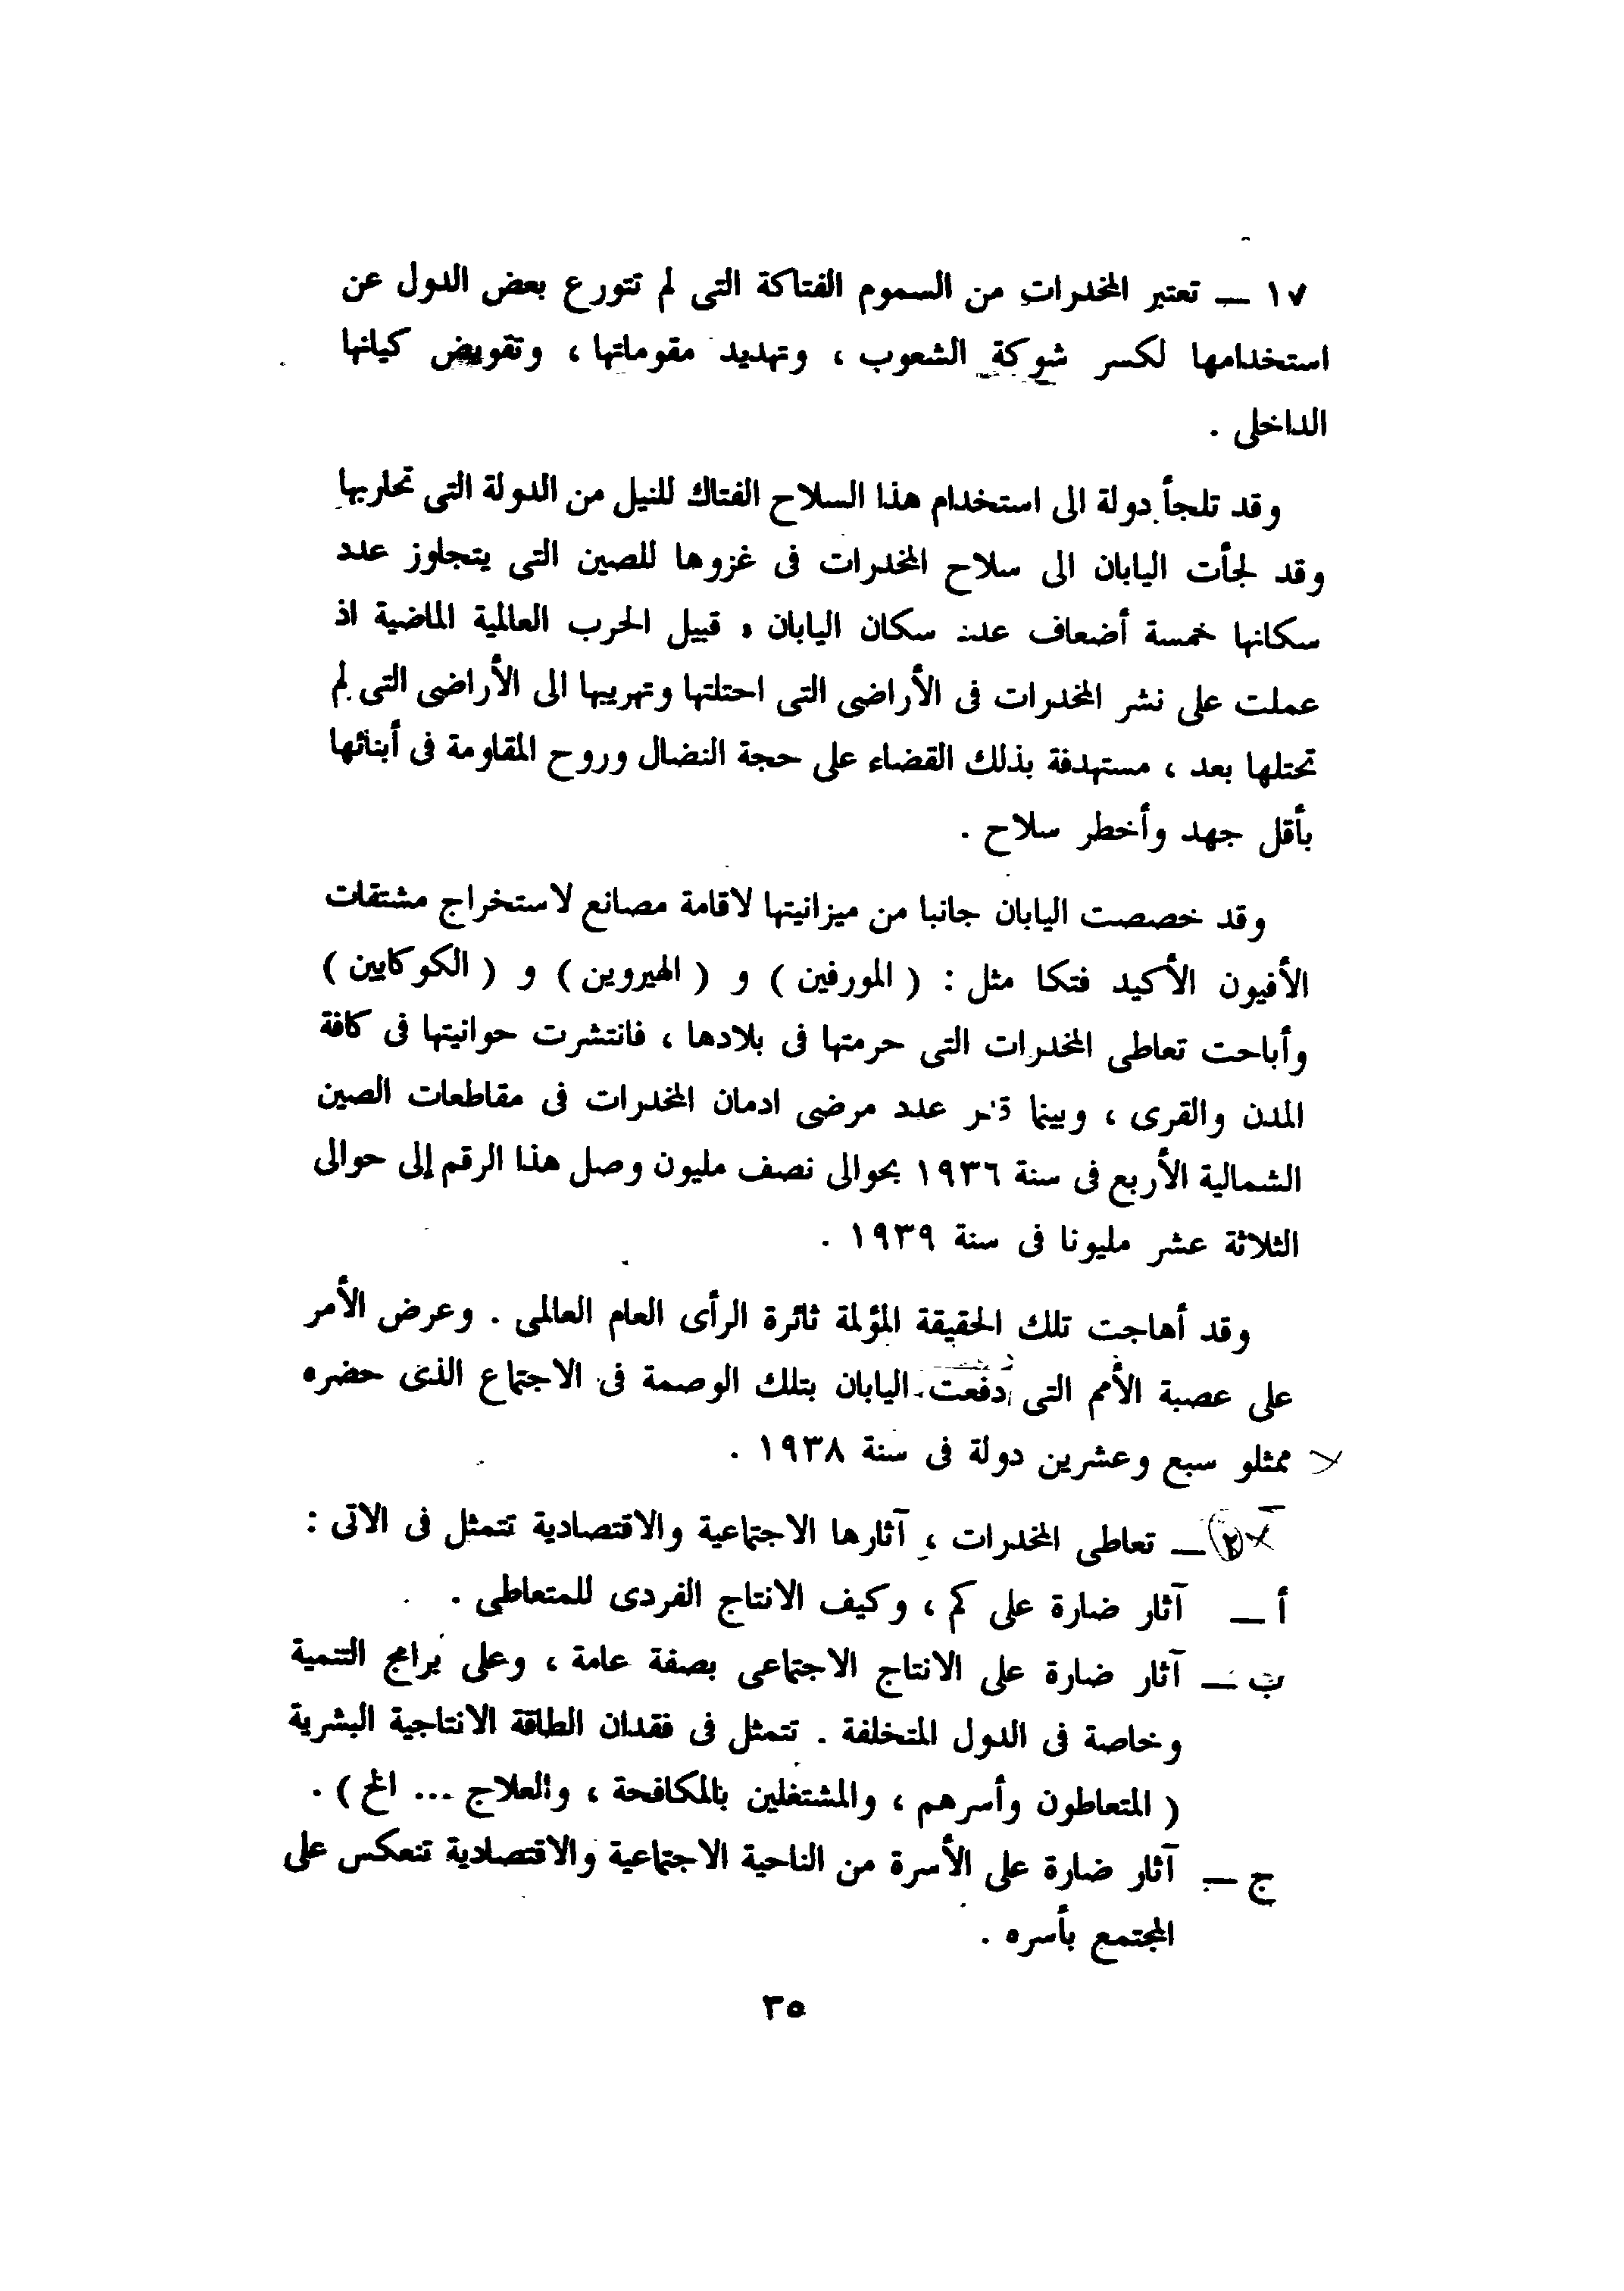 ١٧ — تعتبر المخدرات من السموم الفتاكة التى لم تتورع بعض الدول عن
استخدامها لكسر شوكة الشعوب ، وتهديد مقوماتها ، وتقويض كيانها
الداخلى .
وقد تلجأ دولة الى استخدام هذا السلاح الفتاك للنيل من الدولة التى تحاربها
وقد لجأت اليابان الى سلاح المخدرات فى غزوها للصين التى يتجاوز عدد
سكانها خمسة أضعاف عدد سكان اليابان ، قبيل الحرب العالمية الماضية اذ
عملت على نشر المخدرات فى الأراضى التى احتلتها وتهريبها الى الأراضى التى لم
تحتلها بعد ، مستهدفة بذلك القضاء على حجة النضال وروح المقاومة فى أبنائها
بأقل جهد وأخطر سلاح .
وقد خصصت اليابان جانبا من ميزانيتها لاقامة مصانع لاستخراج مشتقات
الأفيون الأكيد فتكا مثل : ( المورفين ) و ( الهيروين ) و ( الكوكايين )
وأباحت تعاطى المخدرات التى حرمتها فى بلادها ، فانتشرت حوانيتها فى كافة
المدن والقرى ، وبينما عدد مرضى ادمان المخدرات فى مقاطعات الصين
الشمالية الأربع فى سنة ١٩٣٦ بحوالى نصف مليون وصل هذا الرقم إلى حوالى
الثلاثة عشر مليونا فى سنة ١٩٣٩ .
وقد أهاجت تلك الحقيقة المؤلمة ثائرة الرأى العام العالمى . وعرض الأمر
على عصبة الأمم التى دفعت اليابان بتلك الوصمة فى الاجتماع الذى حضره
ممثلو سبع وعشرين دولة فى سنة ١٩٣٨ .
٢ — تعاطى المخدرات ، آثارها الاجتماعية والاقتصادية تتمثل فى الاتى :
أ — آثار ضارة على كم ، وكيف الانتاج الفردى للمتعاطى .
ب — آثار ضارة على الانتاج الاجتماعى بصفة عامة ، وعلى برامج التنمية
وخاصة فى الدول المتخلفة . تتمثل فى فقدان الطاقة الانتاجية البشرية
( المتعاطون وأسرهم ، والمشتغلين بالمكافحة ، والعلاج ... الخ ) .
ج — آثار ضارة على الأسرة من الناحية الاجتماعية والاقتصادية تنعكس على
المجتمع بأسره .
٣٥